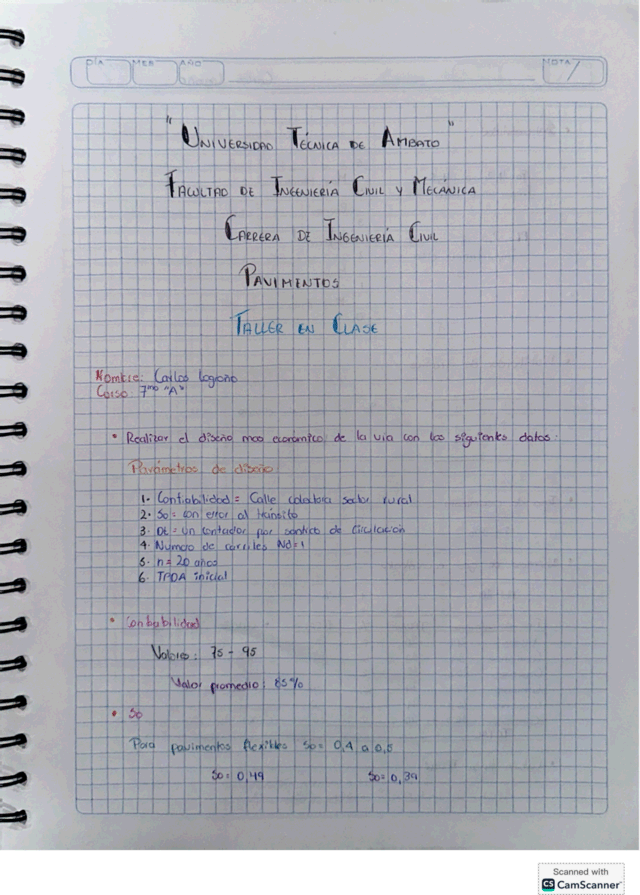 DÍA MES AÑO NOTA
"UNIVERSIDAD TÉCNICA DE AMBATO"
FACULTAD DE INGENIERÍA CIVIL Y MECÁNICA
CARRERA DE INGENIERÍA CIVIL
PAVIMENTOS
TALLER EN CLASE
Nombre: Carlos Logroño
Curso: 7mo "A"
• Realizar el diseño mas economico de la via con los siguientes datos:
Parámetros de diseño
1. Confiabilidad = Calle colectora sector rural
2. So = con error al tránsito
3. Dt = Un contador por sentido de Circulación
4. Numero de carriles Nd=1
5. n = 20 años
6. TPDA inicial
• Confiabilidad
Valores: 75 - 95
Valor promedio: 85%
• So
Para pavimentos flexibles So = 0,4 a 0,5
So = 0,49 So = 0,39
Scanned with
CS CamScanner